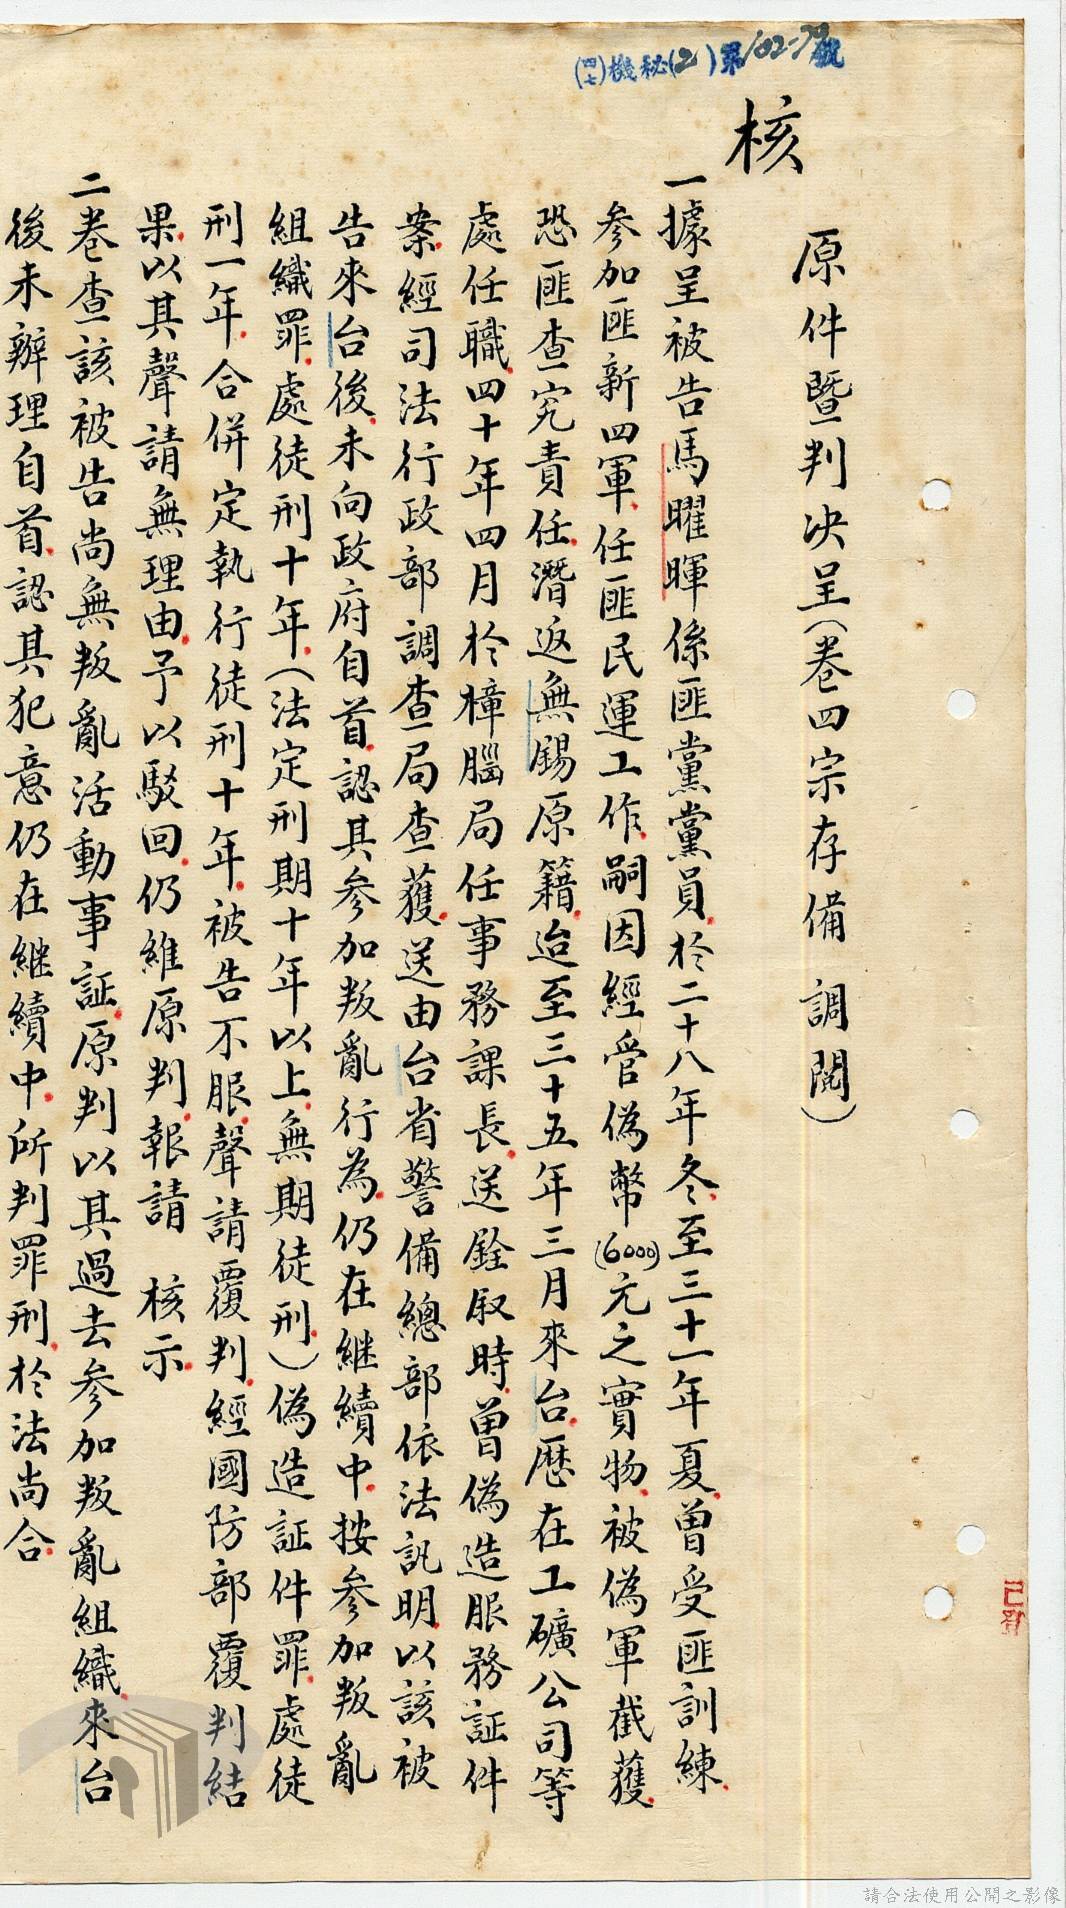 (四七)機秘(2)第102-70號
核
原件暨判決呈(卷四宗存備 調閱)
一據呈被告馬曜暉係匪黨黨員於二十八年冬至三十一年夏曾受匪訓練
參加匪新四軍任匪民運工作嗣因經管偽幣(6000)元之實物被偽軍截獲
恐匪查究責任潛返無錫原籍迨至三十五年三月來台歷在工礦公司等
處任職四十年四月於樟腦局任事務課長送銓敘時曾偽造服務証件
案經司法行政部調查局查獲送由台省警備總部依法訊明以該被
告來台後未向政府自首認其參加叛亂行為仍在繼續中按參加叛亂
組織罪處徒刑十年(法定刑期十年以上無期徒刑)偽造証件罪處徒
刑一年合併定執行徒刑十年被告不服聲請覆判經國防部覆判結
果以其聲請無理由予以駁回仍維原判報請 核示
二卷查該被告尚無叛亂活動事証原判以其過去參加叛亂組織來台
後未辦理自首認其犯意仍在繼續中所判罪刑於法尚合
請合法使用公開之影像